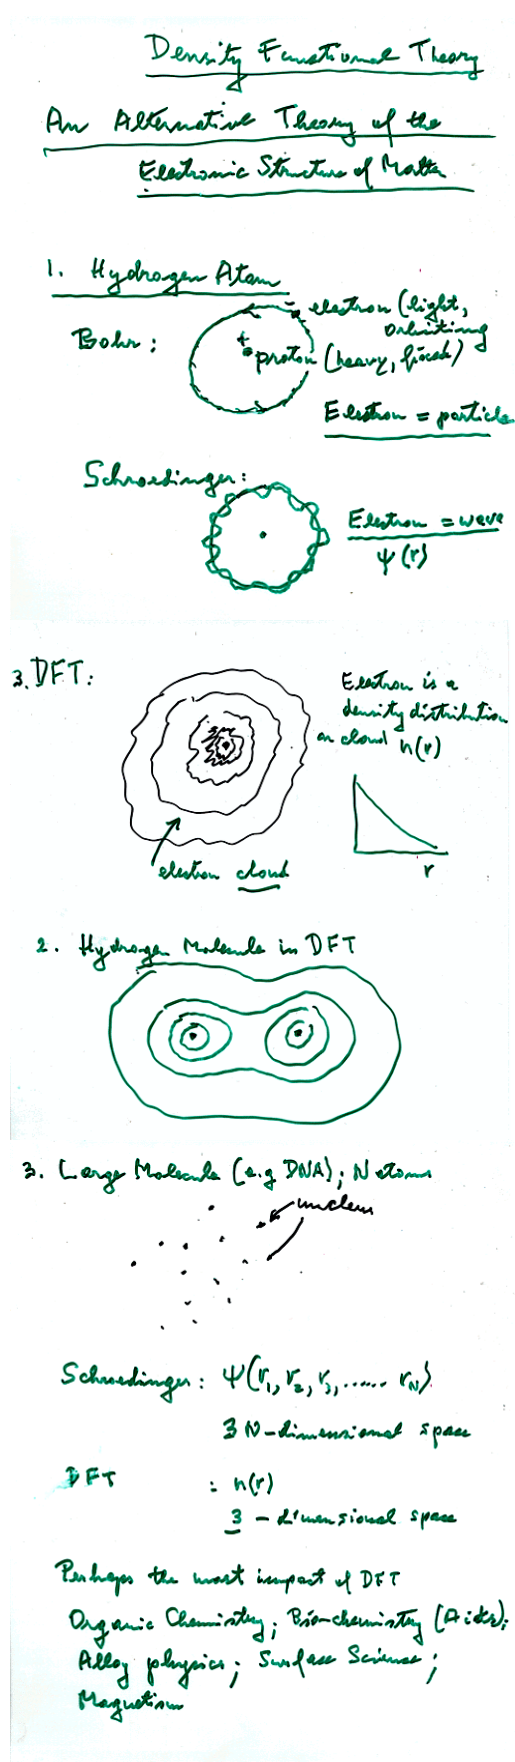 Density Functional Theory
An Alternative Theory of the
Electronic Structure of Matter
1. Hydrogen Atom
Bohr:
electron (light,
orbiting
+
proton (heavy, fixed)
Electron = particle
Schroedinger:
Electron = wave
ψ(r)
3. DFT:
Electron is a
density distribution
or cloud n(r)
electron cloud
r
2. Hydrogen Molecule in DFT
3. Large Molecule (e.g DNA); N atoms
nuclear
Schroedinger: ψ(r1, r2, r3, ...... rN)
3N-dimensional space
DFT : n(r)
3-dimensional space
Perhaps the most impact of DFT
Organic Chemistry; Bio-chemistry
Alloy physics; Surface Science;
Magnetism